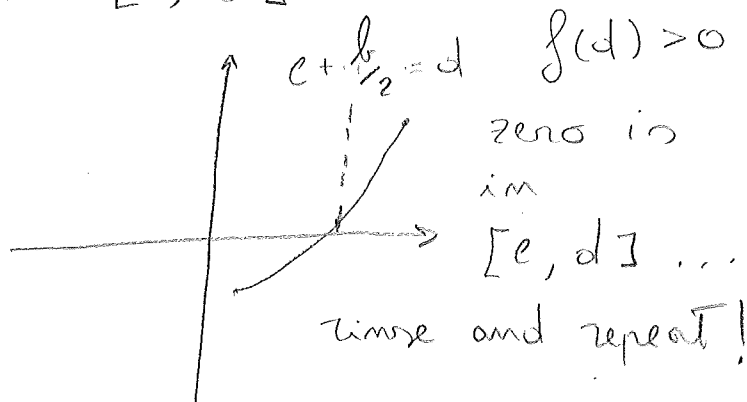 c + b/2 = d   f(d) > 0
zero is
in
[c, d] ...
rinse and repeat!